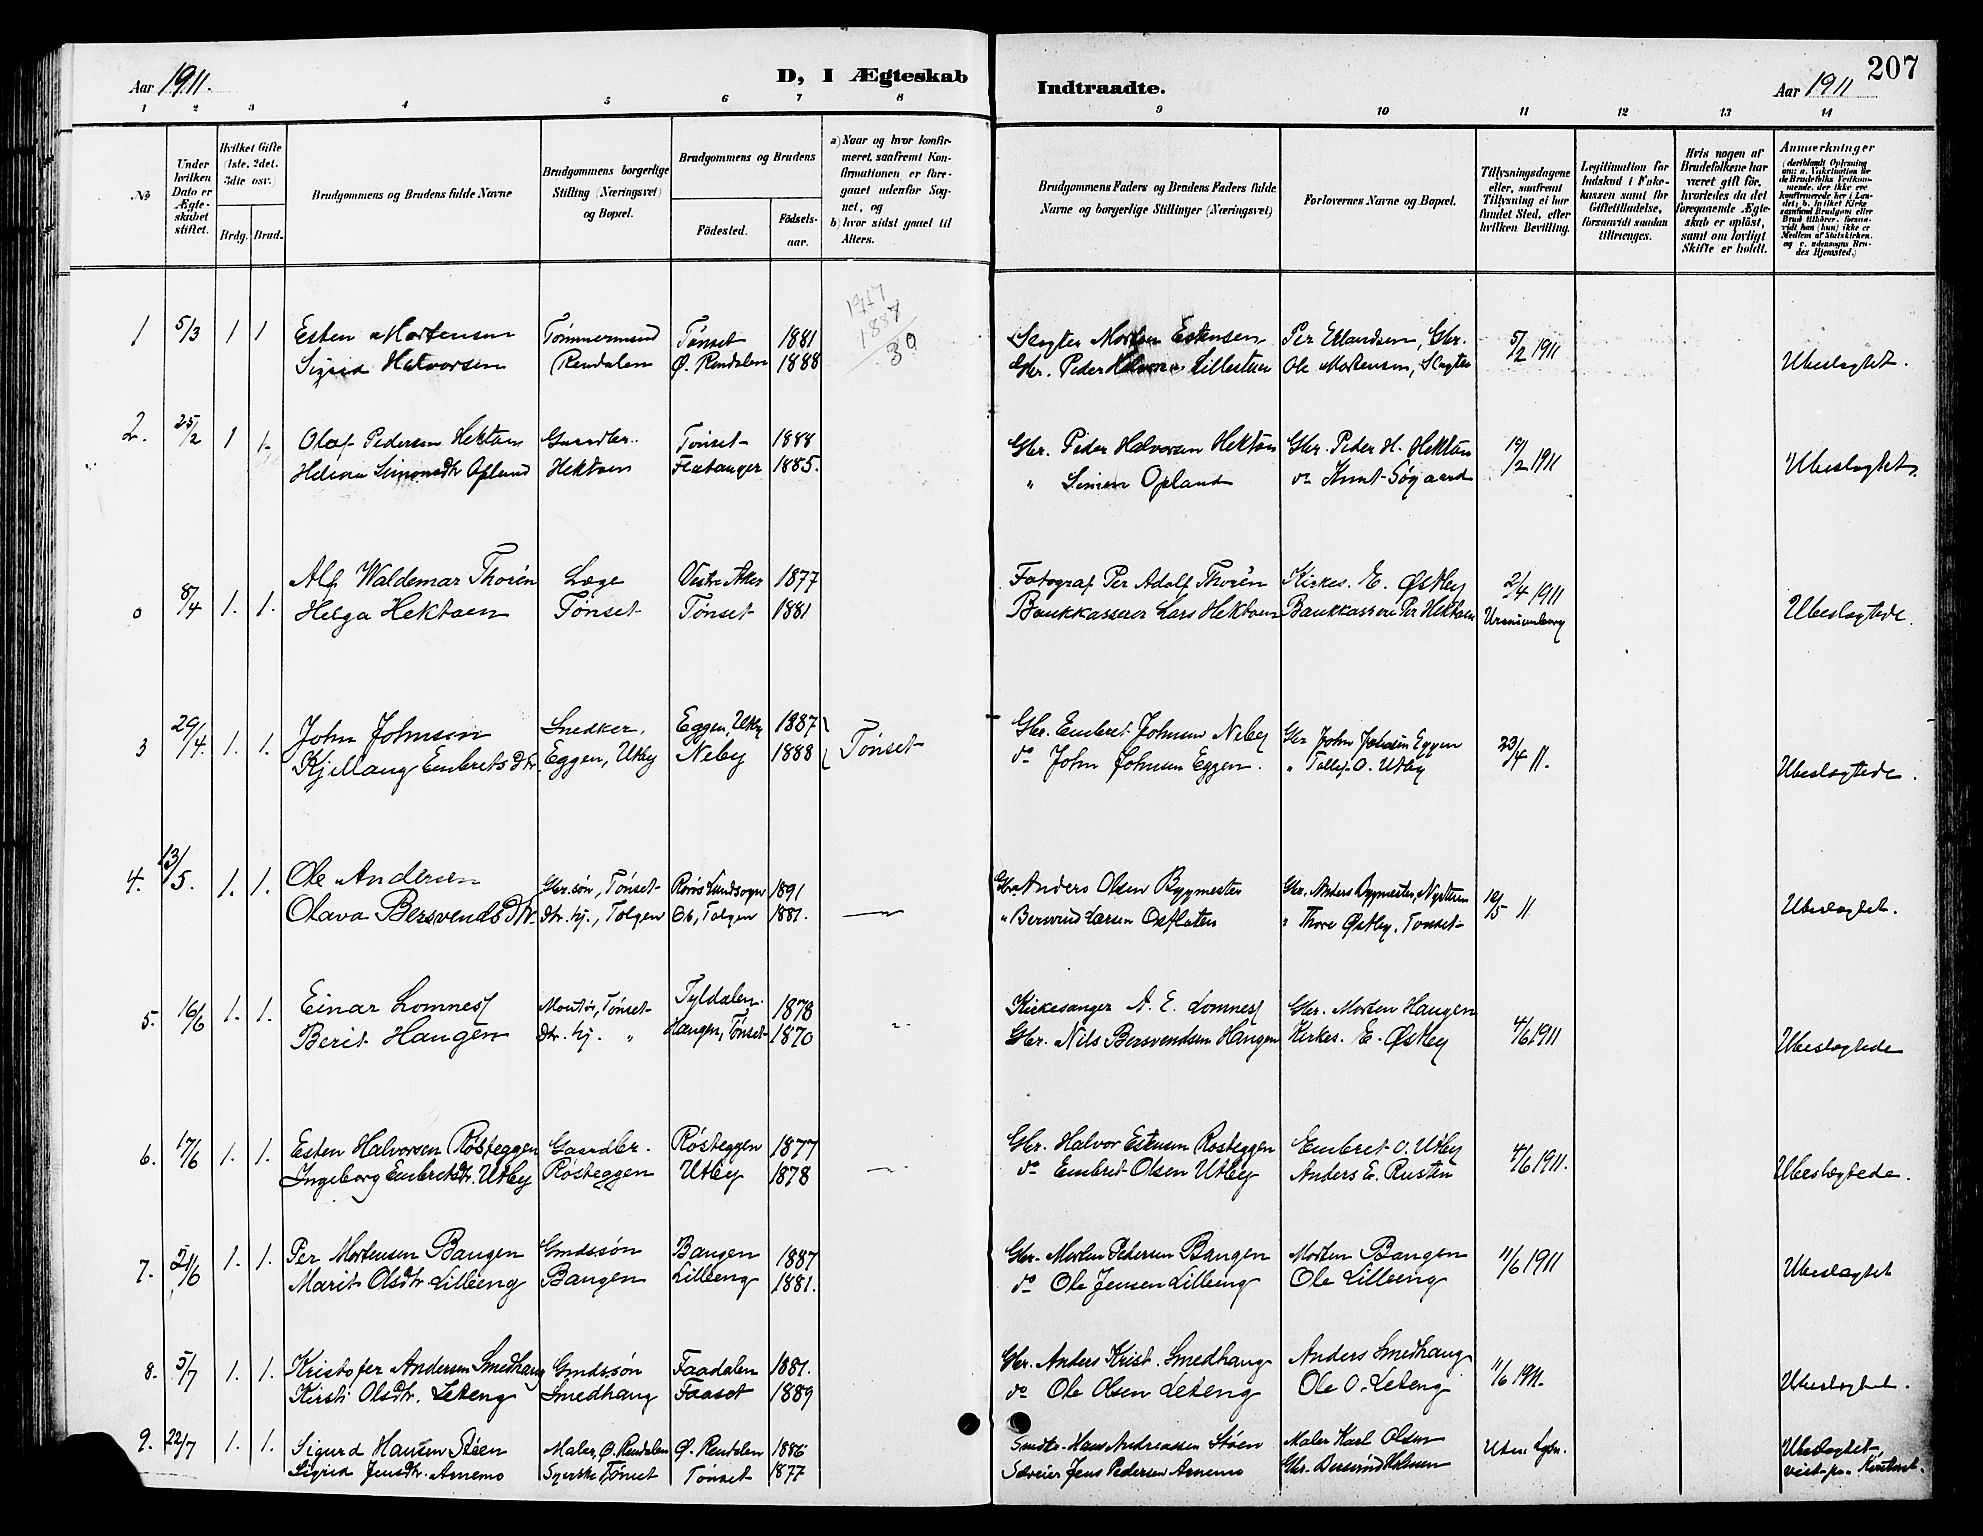 207
Aar 1911.
D, I Ægteskab
Indtraadte.
Aar 1911
1 2 3 4 5 6 7 8 9 10 11 12 13 14
No
Under hvilken Dato er Ægteskabet stiftet.
Hvilket Gifte (1ste, 2det, 3dte osv.)
Brdg. Brud.
Brudgommens og Brudens fulde Navne
Brudgommens borgerlige Stilling (Næringsvei) og Bopæl.
Brudgommens og Brudens
Fødested.
Fødselsaar.
a) Naar og hvor konfirmeret, saafremt Konfirmationen er foregaaet udenfor Sognet, og
b) hvor sidst gaaet til Alters.
Brudgommens Faders og Brudens Faders fulde Navne og borgerlige Stillinger (Næringsvei)
Forlovernes Navne og Bopæl.
Tillysningsdagene eller, saafremt Tillysning ei har fundet Sted, efter hvilken Bevilling.
Legitimation for Indskud i Enkekassen samt for Giftetilladelse, forsaavidt saadan tiltrænges.
Hvis nogen af Brudefolkene har været gift før, hvorledes da det foregaaende Ægteskab er opløst, samt om lovligt Skifte er holdt.
Anmærkninger
1 5/3 1 1 Esten Mortensen Tømmermand Tønset 1881 Slagter Morten Estensen Per Erlandsen, Gbr. 5/2 1911
Sigrid Halvorsen Rendalen Ø. Rendalen 1888 Gbr. Peder Lillestuen Ole Mortensen, Slagter Ubeslægtet.
1887
30
2. 25/2 1 1. Olaf Pedersen Hektoen Gaardbr. Tønset 1888 Gbr. Peder Halvorsen Hektoen Gbr. Peder H. Hektoen 19/2 1911
Simonsdtr Opland Hektoen Flatanger 1885. " Simon Opland do Knut Søgaard Ubeslægtet.
0 8/4 1. 1. Alf Waldemar Thorén Læge Vestre Aker 1877 Fotograf Per Adolf Thorén Kirkes. E. Østby 2/4 1911
Helga Hektoen Tønset Tønset 1881 Bankkasserer Lars Hektoen Bankkasserer Per Hektoen Uranienborg Ubeslægtede.
3 29/4. 1. 1. John Johnsen Snedker, Eggen, Utby 1887 Gbr. Embret Johnsen Neby Gbr John Johnsen Eggen 23/4 11.
Kjellaug Embretsdtr. Eggen, Utby Neby 1888 Tønset do John Johnsen Eggen. " Tollef O. Utby Ubeslægtede.
4. 13/5. 1. 1. Ole Andersen Gbr.søn, Tønset Røros Landsogn 1891 Gbr. Anders Olsen Bygmester Gbr. Anders Bygmester, 12/5 11
Olava Bersvendsdtr. Dtr. hj., Tolgen Os, Tolgen 1881. — " Bersvend Larsen Osfloten " Thore Østby, Tønset Ubeslægtet.
5. 16/6 1. 1. Einar Lomnesf Montør, Tønset Tyldalen 1878 Kirkesanger A. E. Lomnesf Gbr. Morten Haugen
Berit Haugen Dtr. hj. " Haugen, Tønset 1870 " Gbr. Nils Bersvendsen Haugen Kirkes. E. Østby 4/6 1911 Ubeslægtede
6. 17/6 1. 1. Esten Halvorsen Røsteggen Gaardbr. Røsteggen 1877 Gbr. Halvor Estensen Røsteggen Embret O. Utby
Ingeborg Embretsdtr. Utby Røsteggen Utby 1878 — do Embret Olsen Utby Anders E. Rusten 4/6 1911. Ubeslægtede.
7. 24/6 1. 1. Per Mortensen Bangen Gmdssøn Bangen 1887 Gbr. Morten Pedersen Bangen Morten Bangen 11/6 1911
Marit Olsdtr Lilleeng Bangen Lilleeng 1881. do Ole Jensen Lilleeng Ole Lilleeng Ubeslægtet
8. 5/7 1. 1. Kristofer Andersen Smedhaug Gmdssøn Faadalen 1881. Gbr. Anders Krist. Smedhaug Anders Smedhaug 11/6 1911.
Kirsti Olsdtr. Leteng Smedhaug Faaset 1889 do Ole Olsen Leteng Ole O. Leteng Ubeslægtet.
9. 22/7 1. 1. Sigurd Hansen Støen Maler, Ø. Rendalen Ø. Rendalen 1886 Hans Andreassen Støen Maler Karl Olsen Uden Lysn. Ubeslægtet,
Sigrid Jensdtr. Arnemo Syerske, Tønset Tønset 1877 Jens Pedersen Arnemo Gbr. Bersvend Holmen viet paa Kontoret.